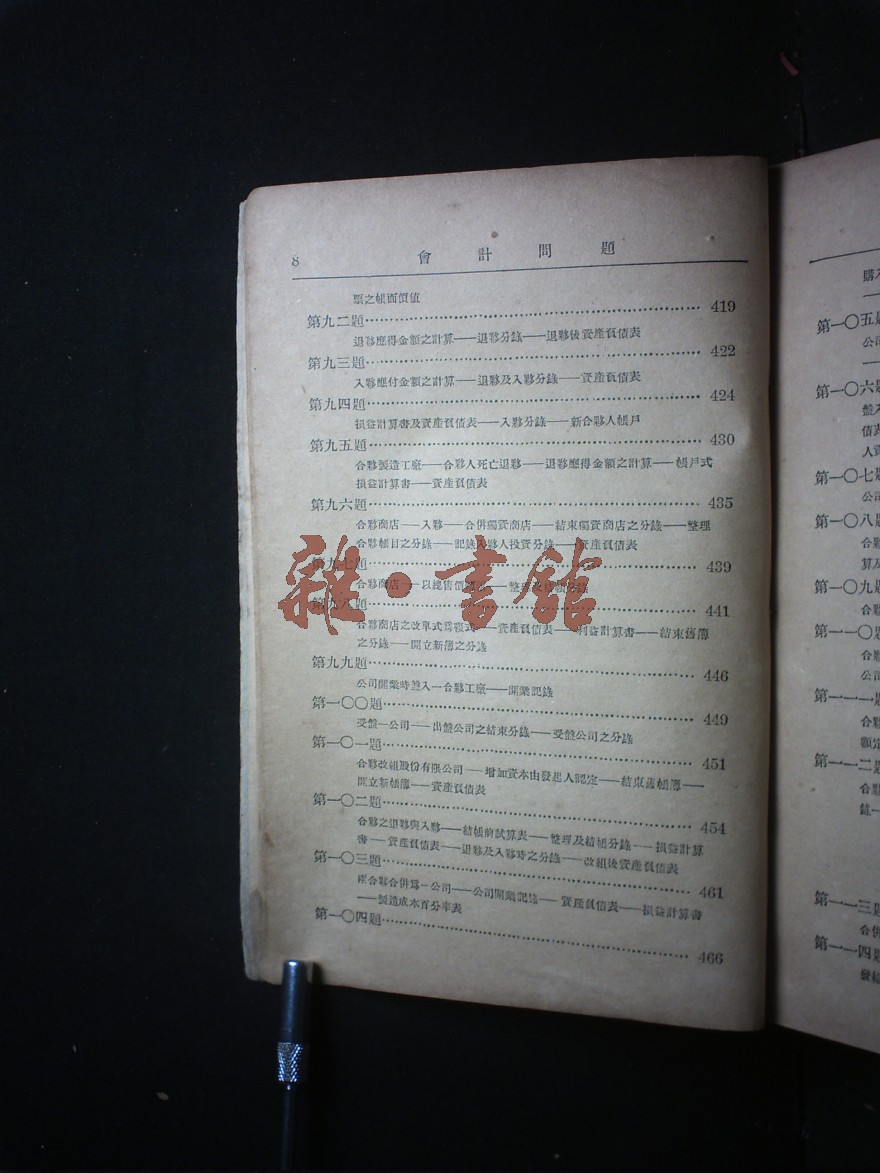 8 會計問題
票之帳面價值
第九二題 419
退夥應得金額之計算——退夥分錄——退夥後資產負債表
第九三題 422
入夥應付金額之計算——退夥及入夥分錄——資產負債表
第九四題 424
損益計算書及資產負債表——入夥分錄——新合夥人帳戶
第九五題 430
合夥製造工廠——合夥人死亡退夥——退夥應得金額之計算——帳戶式
損益計算書——資產負債表
第九六題 435
合夥商店——入夥——合併獨資商店——結束獨資商店之分錄——整理
合夥帳目之分錄——記錄入夥人投資分錄——資產負債表
第九七題 439
合夥商店——以總售價
第九八題 441
合夥商店之改單式爲複式——資產負債表——利益計算書——結束舊簿
之分錄——開立新簿之分錄
第九九題 446
公司開業時盤入一合夥工廠——開業記錄
第一〇〇題 449
受盤一公司——出盤公司之結束分錄——受盤公司之分錄
第一〇一題 451
合夥改組股份有限公司——增加資本由發起人認定——結束舊帳簿——
開立新帳簿——資產負債表
第一〇二題 454
合夥之退夥與入夥——結帳前試算表——整理及結帳分錄——損益計算
書——資產負債表——退夥及入夥時之分錄——改組後資產負債表
第一〇三題 461
兩合夥合併爲一公司——公司開業記錄——資產負債表——損益計算書
——製造成本百分率表
第一〇四題 466
雜·書館
購入
第一〇五題
公司
第一〇六題
盤入
債表
人資
第一〇七題
公司
第一〇八題
合夥
算及
第一〇九題
合夥
第一一〇題
合夥
公司
第一一一題
合夥
額定
第一一二題
合夥
第一一三題
合併
第一一四題
發給